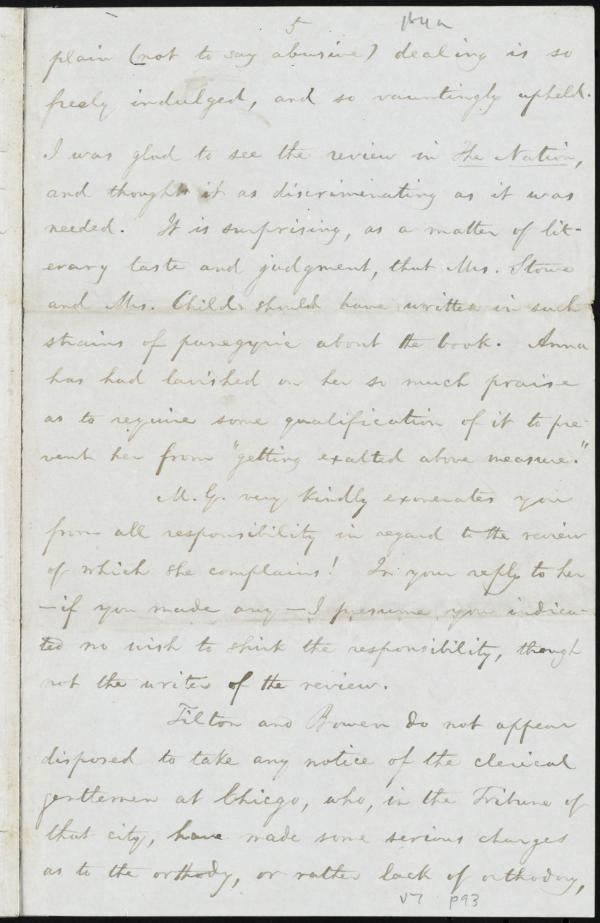 5
164a
plain (not to say abusive) dealing is so
freely indulged, and so vauntingly upheld.
I was glad to see the review in The Nation,
and thought it as discriminating as it was
needed. It is surprising, as a matter of lit-
erary taste and judgment, that Mrs. Stowe
and Mrs. Child should have written in such
strains of panegyric about the book. Anna
has had lavished on her so much praise
as to require some qualification of it to pre-
vent her from "getting exalted above measure."
M. G. very kindly exonerates you
from all responsibility in regard to the review
of which she complains! In your reply to her
—if you made any—I presume you indica-
ted no wish to shirk the responsibility, though
not the writer of the review.
Tilton and Bowen do not appear
disposed to take any notice of the clerical
gentlemen at Chicgo, who, in the Tribune of
that city, have made some serious charges
as to the orthody, or rather lack of orthodoxy,
v7 p93